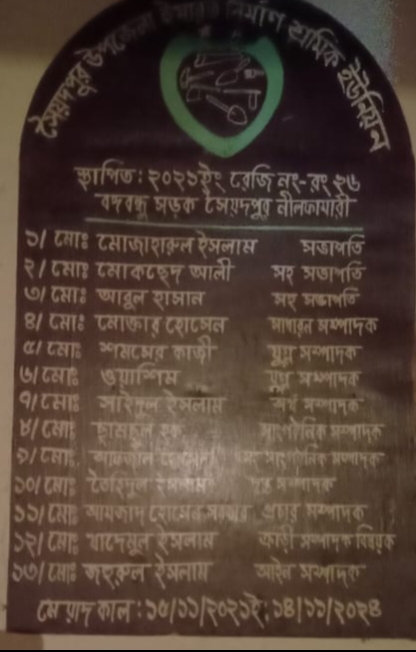 সৈয়দপুর উপজেলা ইমারত নির্মাণ শ্রমিক ইউনিয়ন
স্থাপিত : ২০২১ইং রেজি নং-রং ২৬
বঙ্গবন্ধু সড়ক সৈয়দপুর নীলফামারী
১/ মোঃ মোজাহারুল ইসলাম সভাপতি
২/ মোঃ মোকছেদ আলী সহ সভাপতি
৩/ মোঃ আবুল হাসান সহ সভাপতি
৪/ মোঃ মোক্তার হোসেন সাধারন সম্পাদক
৫/ মোঃ শমসের কাজী যুগ্ন সম্পাদক
৬/ মোঃ ওয়াশিম যুগ্ন সম্পাদক
৭/ মোঃ সাইদুল ইসলাম অর্থ সম্পাদক
৮/ মোঃ ছামছুল হক সাংগঠনিক সম্পাদক
৯/ মোঃ হোসেন সহ সাংগঠনিক সম্পাদক
১০/ মোঃ তৌহিদুল ইসলাম সম্পাদক
১১/ মোঃ আমজাদ হোসেন সরকার প্রচার সম্পাদক
১২/ মোঃ খাদেমুল ইসলাম ক্রীড়া সম্পাদক বিষয়ক
১৩/ মোঃ জহুরুল ইসলাম আইন সম্পাদক
মেয়াদ কাল : ১৫/১১/২০২১ইং ১৪/১১/২০২৪